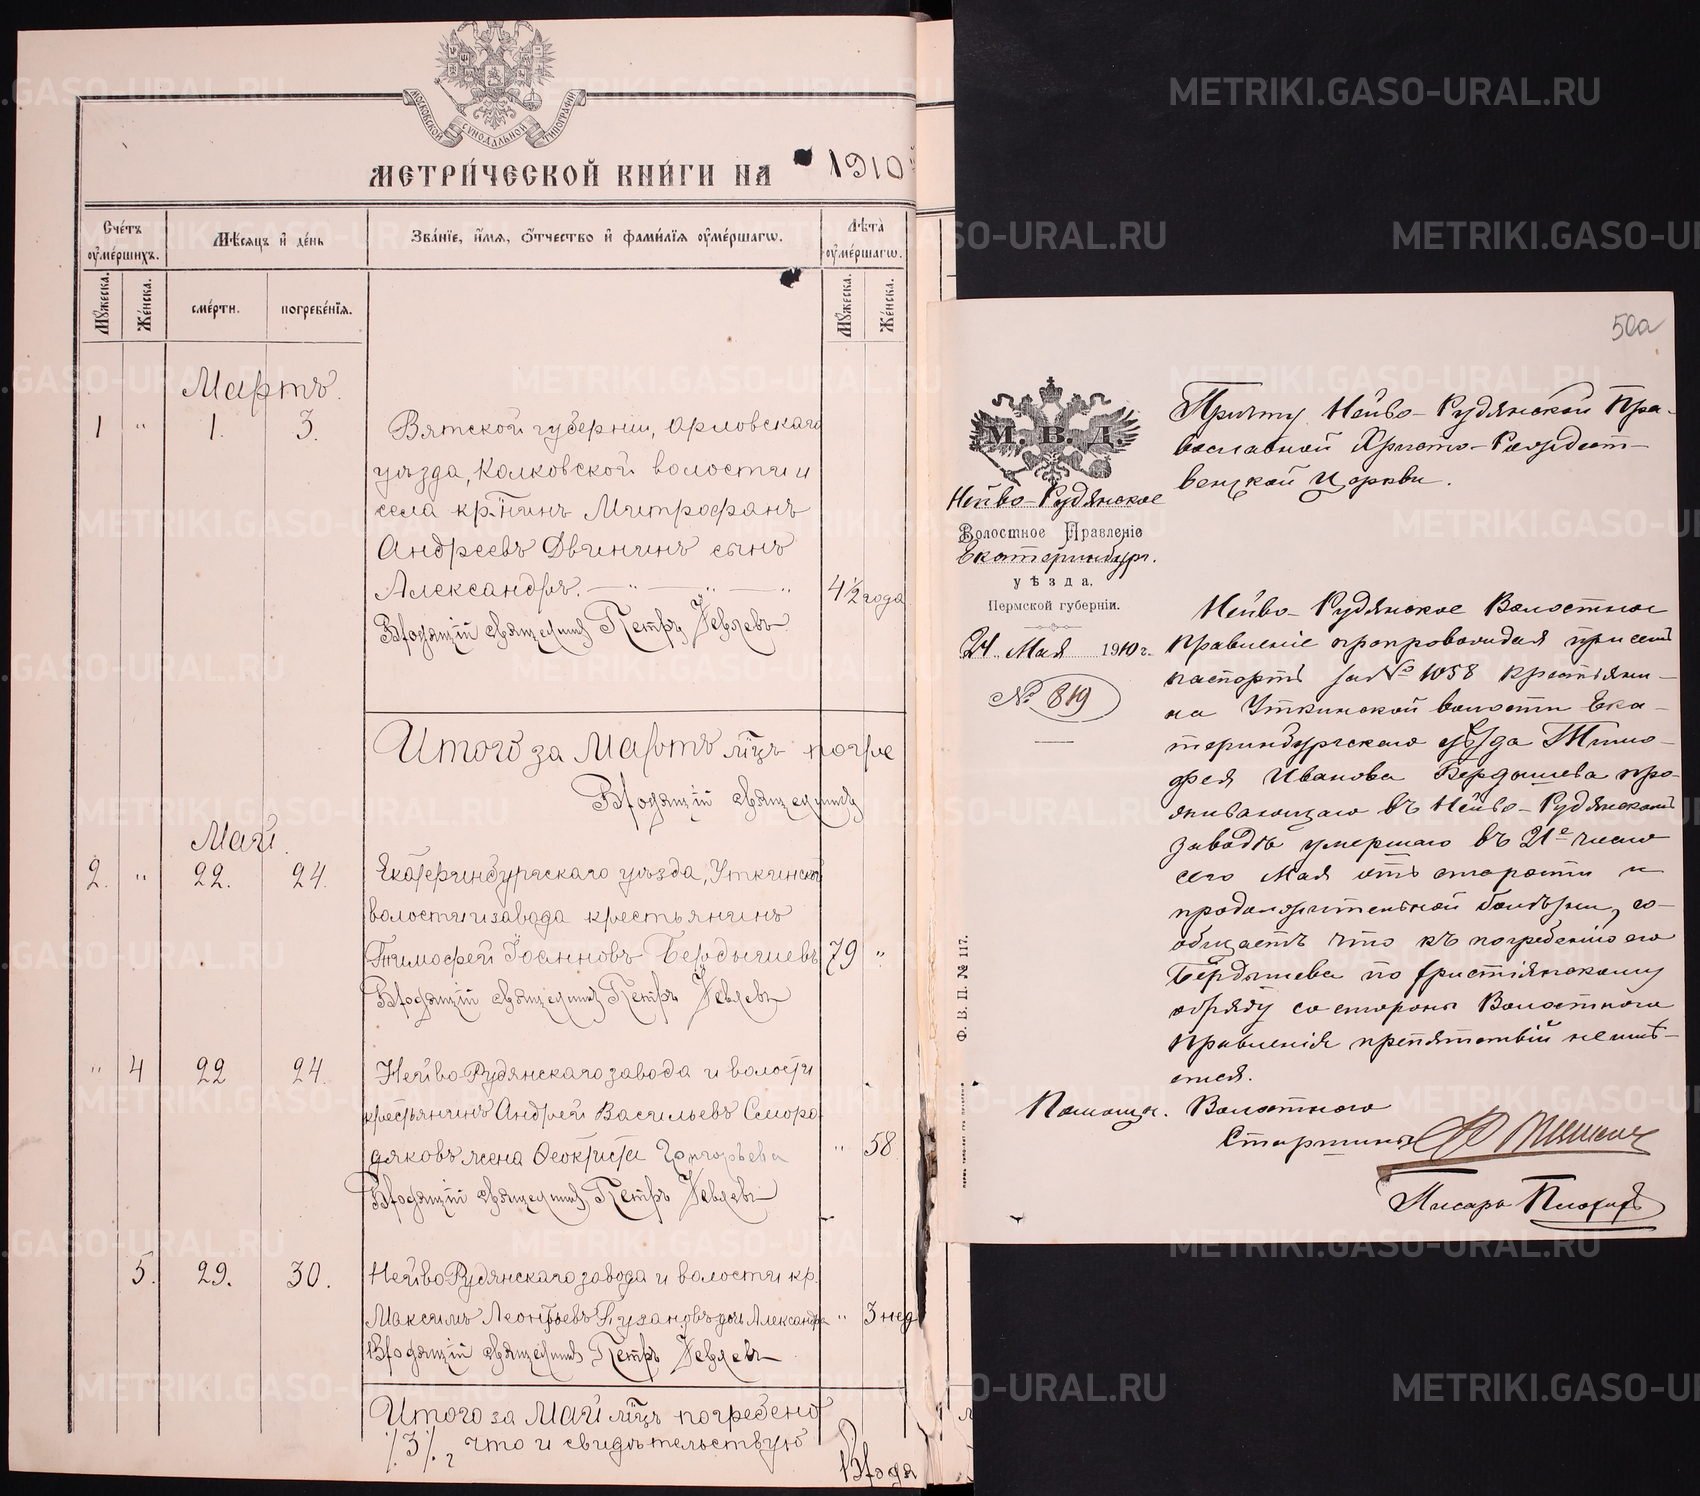 МОСКОВСКОЙ СѴНОДАЛЬНОЙ ТИПОГРАФІИ
МЕТРИ́ЧЕСКОЙ КНИ́ГИ НА 1910
Сче́тъ ᲂумершихъ.
Мѣсяцъ и де́нь
Зва́нїе, и́мя, ѻ́тчество и фами́лїя ᲂуме́ршагѡ.
Лѣта̀ ᲂуме́ршагѡ.
Мꙋжеска.
Же́нска.
сме́рти.
погребе́нїя.
Мꙋжеска.
Же́нска.
Мартъ.
1 " 1. 3. Вятской губерніи, Орловскаго
уѣзда, Колковской волости и
села кр-нинъ Митрофанъ
Андреевъ Двининъ сынъ
Александръ. — " — " — " 4½ года
Входящій священникъ Петръ
Итого за Мартъ мцъ погре
Входящій священникъ
Май
2. " 22. 24. Екатеринбургскаго уѣзда, Уткинской
волости и завода крестьянинъ
Тимофей Іоанновъ Бердышевъ 79 "
Входящій священникъ Петръ
" 4 22 24. Нейво Рудянскаго завода и волости
крестьянинъ Андрей Васильевъ Сморо
дяковъ жена Ѳеоктиста Григорьева " 58.
Входящій священникъ Петръ
5. 29. 30. Нейво Рудянскаго завода и волости кр.
Максимъ Леонтьевъ Пузановъ дочь Александра " 3 нед
Входящій священникъ Петръ
Итого за Май мцъ погребено
./.3./. что и свидѣтельствую
Входя
50а
М. В. Д.
Нейво-Рудянское
Волостное Правленіе
Екатеринбург.
уѣзда.
Пермской губерніи.
24 Мая 1910 г.
№ 819
Ф. В. П. № 117.
Причту Нейво-Рудянской Пра-
вославной Христо-Рождест-
венской Церкви.
Нейво-Рудянское Волостное
Правленіе препровождая при семъ
паспортъ за № 1058 крестьяни-
на Уткинской волости Ека-
теринбургскаго уѣзда Тимо-
фея Иванова Бердышева про-
живающаго въ Нейво-Рудянскомъ
заводѣ умершаго въ 21е число
сего Мая отъ старости и
продолжительной болѣзни, со-
общаетъ что къ погребенію его
Бердышева по христіянскому
обряду со стороны Волостного
Правленія препятствій не имѣ-
ется.
Помощн. Волостного
Старшины
Писарь
METRIKI.GASO-URAL.RU